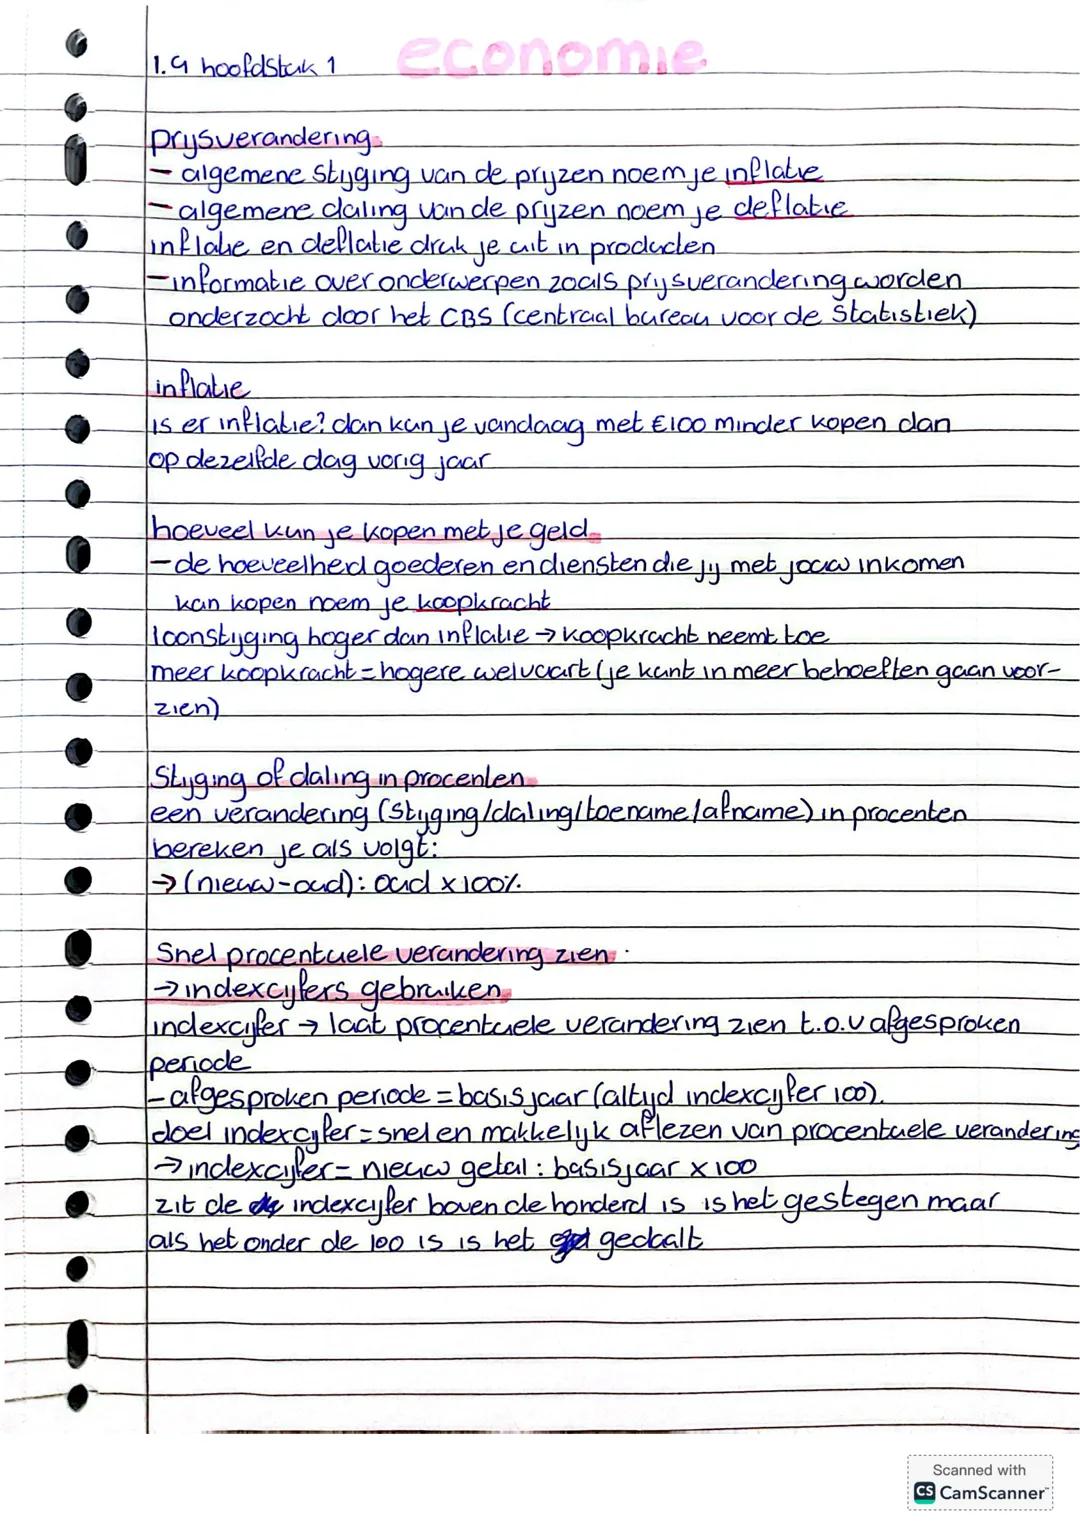 economie
1.4 hoofdstuk 1
prijsverandering
- algemene stijging van de prijzen noem je inflatie
- algemene daling van de prijzen noem je deflatie
inflatie en deflatie druk je uit in producten
- informatie over onderwerpen zoals prijsverandering worden
onderzocht door het CBS (centraal bureau voor de Statistiek)
inflatie
is er inflatie? dan kun je vandaag met €100 minder kopen dan
op dezelfde dag vorig jaar
hoeveel kun je kopen met je geld
- de hoeveelheid goederen en diensten die jij met jouw inkomen
kan kopen noem je koopkracht
loonstijging hoger dan inflatie → koopkracht neemt toe
meer koopkracht = hogere welvaart (je kunt in meer behoeften gaan voor-
zien)
Stijging of daling in procenten
een verandering (stijging/daling/toename/afname) in procenten
bereken je als volgt:
→ (nieuw-oud) : oud x 100%
Snel procentuele verandering zien
→ indexcijfers gebruiken
indexcijfer → laat procentuele verandering zien t.o.v afgesproken
periode
- afgesproken periode = basisjaar (altijd indexcijfer 100).
doel indexcijfer = snel en makkelijk aflezen van procentuele verandering
→ indexcijfer = nieuw getal : basisjaar x 100
zit de indexcijfer boven de honderd is is het gestegen maar
als het onder de 100 is is het gedaalt
Scanned with
CS CamScanner